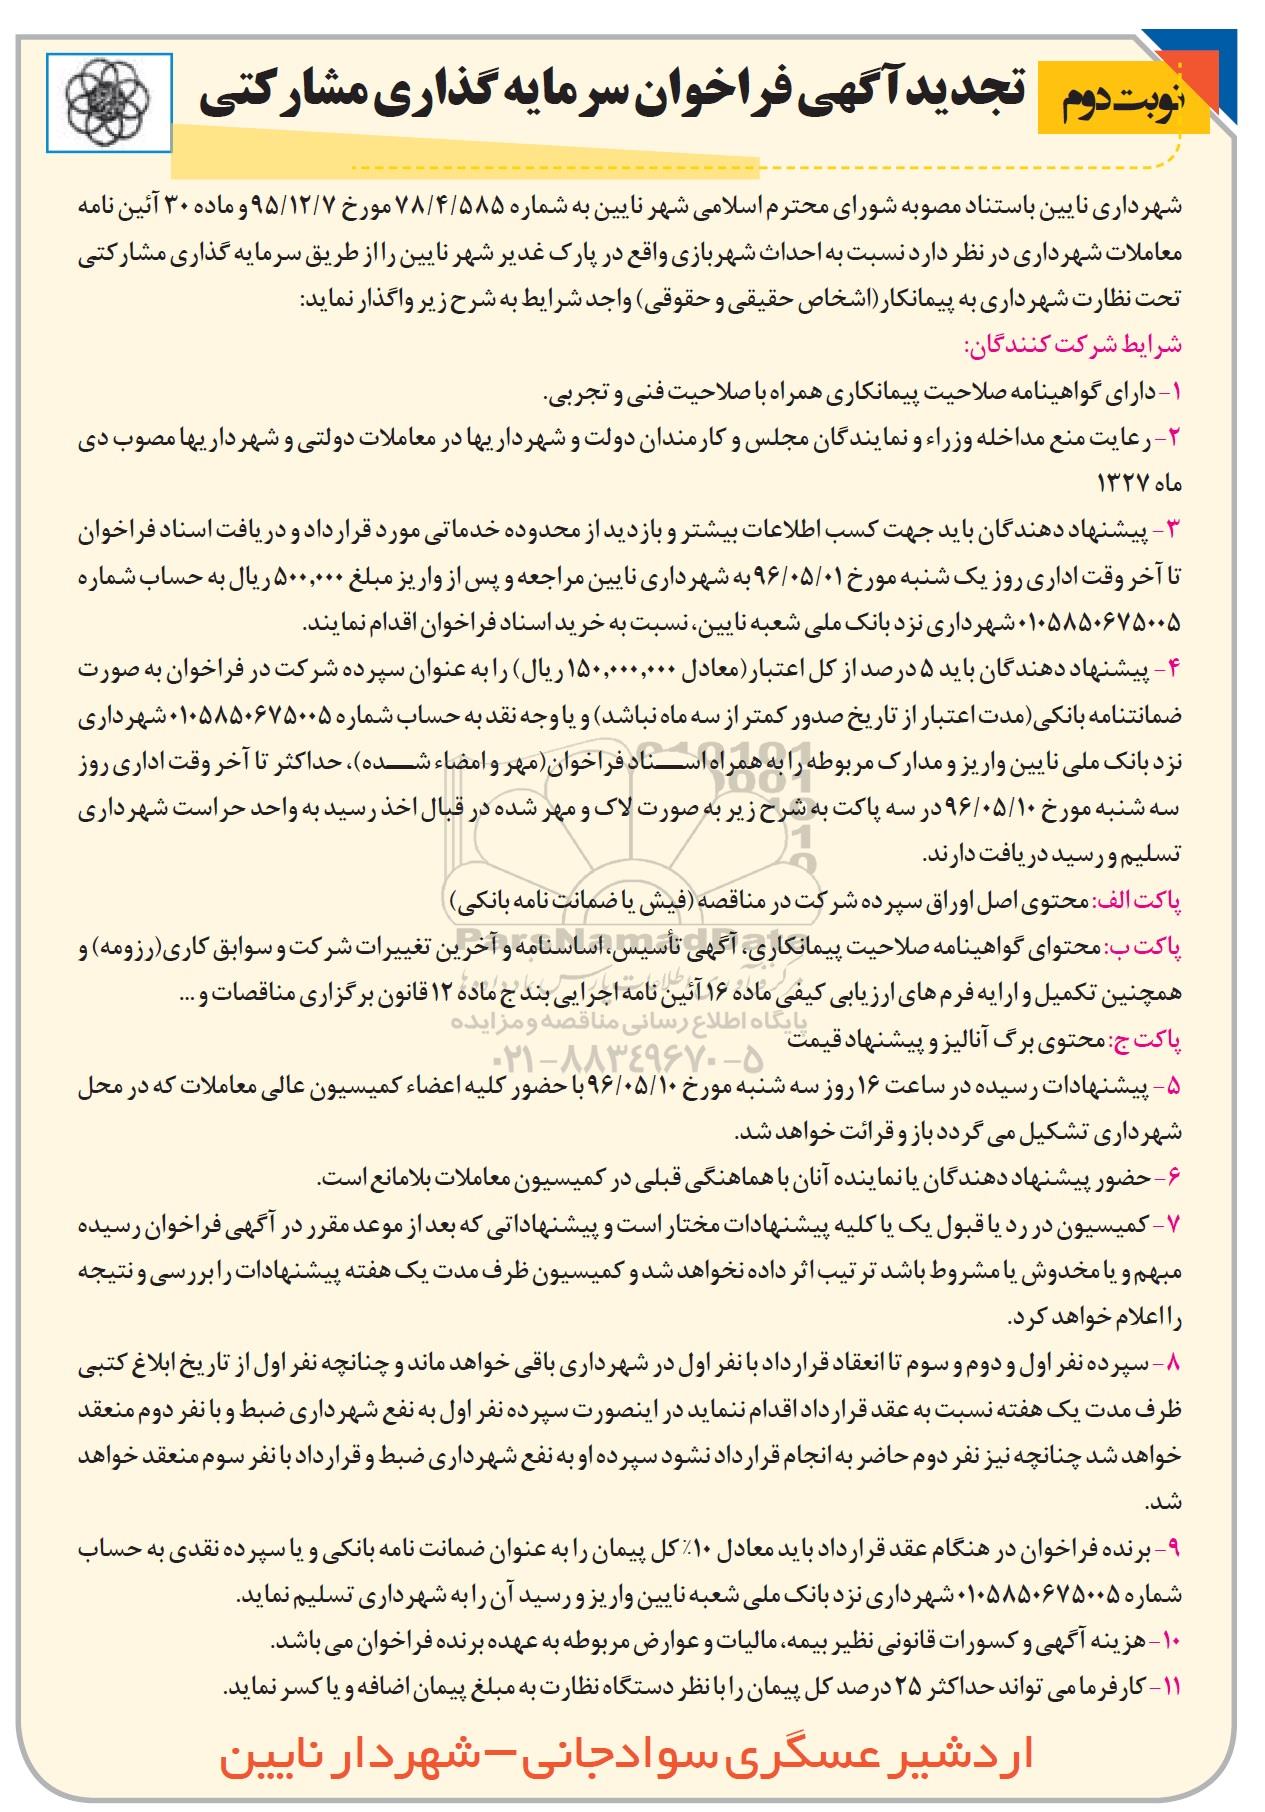 نوبت دوم
تجدید آگهی فراخوان سرمایه گذاری مشارکتی
شهرداری نایین باستناد مصوبه شورای محترم اسلامی شهر نایین به شماره ۷۸/۴/۵۸۵ مورخ ۹۵/۱۲/۷ و ماده ۳۰ آئین نامه
معاملات شهرداری در نظر دارد نسبت به احداث شهربازی واقع در پارک غدیر شهر نایین را از طریق سرمایه گذاری مشارکتی
تحت نظارت شهرداری به پیمانکار(اشخاص حقیقی و حقوقی) واجد شرایط به شرح زیر واگذار نماید:
شرایط شرکت کنندگان:
۱- دارای گواهینامه صلاحیت پیمانکاری همراه با صلاحیت فنی و تجربی.
۲- رعایت منع مداخله وزراء و نمایندگان مجلس و کارمندان دولت و شهرداریها در معاملات دولتی و شهرداریها مصوب دی
ماه ۱۳۲۷
۳- پیشنهاد دهندگان باید جهت کسب اطلاعات بیشتر و بازدید از محدوده خدماتی مورد قرارداد و دریافت اسناد فراخوان
تا آخر وقت اداری روز یک شنبه مورخ ۹۶/۰۵/۰۱ به شهرداری نایین مراجعه و پس از واریز مبلغ ۵۰۰,۰۰۰ ریال به حساب شماره
۰۱۰۵۸۵۰۶۷۵۰۰۵ شهرداری نزد بانک ملی شعبه نایین، نسبت به خرید اسناد فراخوان اقدام نمایند.
۴- پیشنهاد دهندگان باید ۵ درصد از کل اعتبار(معادل ۱۵۰,۰۰۰,۰۰۰ ریال) را به عنوان سپرده شرکت در فراخوان به صورت
ضمانتنامه بانکی(مدت اعتبار از تاریخ صدور کمتر از سه ماه نباشد) و یا وجه نقد به حساب شماره ۰۱۰۵۸۵۰۶۷۵۰۰۵ شهرداری
نزد بانک ملی نایین واریز و مدارک مربوطه را به همراه اســناد فراخوان(مهر و امضاء شــده)، حداکثر تا آخر وقت اداری روز
سه شنبه مورخ ۹۶/۰۵/۱۰ در سه پاکت به شرح زیر به صورت لاک و مهر شده در قبال اخذ رسید به واحد حراست شهرداری
تسلیم و رسید دریافت دارند.
پاکت الف: محتوی اصل اوراق سپرده شرکت در مناقصه (فیش یا ضمانت نامه بانکی)
ParsNamadData
پاکت ب: محتوای گواهینامه صلاحیت پیمانکاری، آگهی تأسیس، اساسنامه و آخرین تغییرات شرکت و سوابق کاری(رزومه) و
همچنین تکمیل و ارایه فرم های ارزیابی کیفی ماده ۱۶ آئین نامه اجرایی بند ج ماده ۱۲ قانون برگزاری مناقصات و ...
پایگاه اطلاع رسانی مناقصه و مزایده
پاکت ج: محتوی برگ آنالیز و پیشنهاد قیمت
۰۲۱-۸۸۳۴۹۶۷۰-۵
۵- پیشنهادات رسیده در ساعت ۱۶ روز سه شنبه مورخ ۹۶/۰۵/۱۰ با حضور کلیه اعضاء کمیسیون عالی معاملات که در محل
شهرداری تشکیل می گردد باز و قرائت خواهد شد.
۶- حضور پیشنهاد دهندگان یا نماینده آنان با هماهنگی قبلی در کمیسیون معاملات بلامانع است.
۷- کمیسیون در رد یا قبول یک یا کلیه پیشنهادات مختار است و پیشنهاداتی که بعد از موعد مقرر در آگهی فراخوان رسیده
مبهم و یا مخدوش یا مشروط باشد ترتیب اثر داده نخواهد شد و کمیسیون ظرف مدت یک هفته پیشنهادات را بررسی و نتیجه
را اعلام خواهد کرد.
۸- سپرده نفر اول و دوم و سوم تا انعقاد قرارداد با نفر اول در شهرداری باقی خواهد ماند و چنانچه نفر اول از تاریخ ابلاغ کتبی
ظرف مدت یک هفته نسبت به عقد قرارداد اقدام ننماید در اینصورت سپرده نفر اول به نفع شهرداری ضبط و با نفر دوم منعقد
خواهد شد چنانچه نیز نفر دوم حاضر به انجام قرارداد نشود سپرده او به نفع شهرداری ضبط و قرارداد با نفر سوم منعقد خواهد
شد.
۹- برنده فراخوان در هنگام عقد قرارداد باید معادل ۱۰٪ کل پیمان را به عنوان ضمانت نامه بانکی و یا سپرده نقدی به حساب
شماره ۰۱۰۵۸۵۰۶۷۵۰۰۵ شهرداری نزد بانک ملی شعبه نایین واریز و رسید آن را به شهرداری تسلیم نماید.
۱۰- هزینه آگهی و کسورات قانونی نظیر بیمه، مالیات و عوارض مربوطه به عهده برنده فراخوان می باشد.
۱۱- کارفرما می تواند حداکثر ۲۵ درصد کل پیمان را با نظر دستگاه نظارت به مبلغ پیمان اضافه و یا کسر نماید.
اردشیر عسگری سوادجانی – شهردار نایین